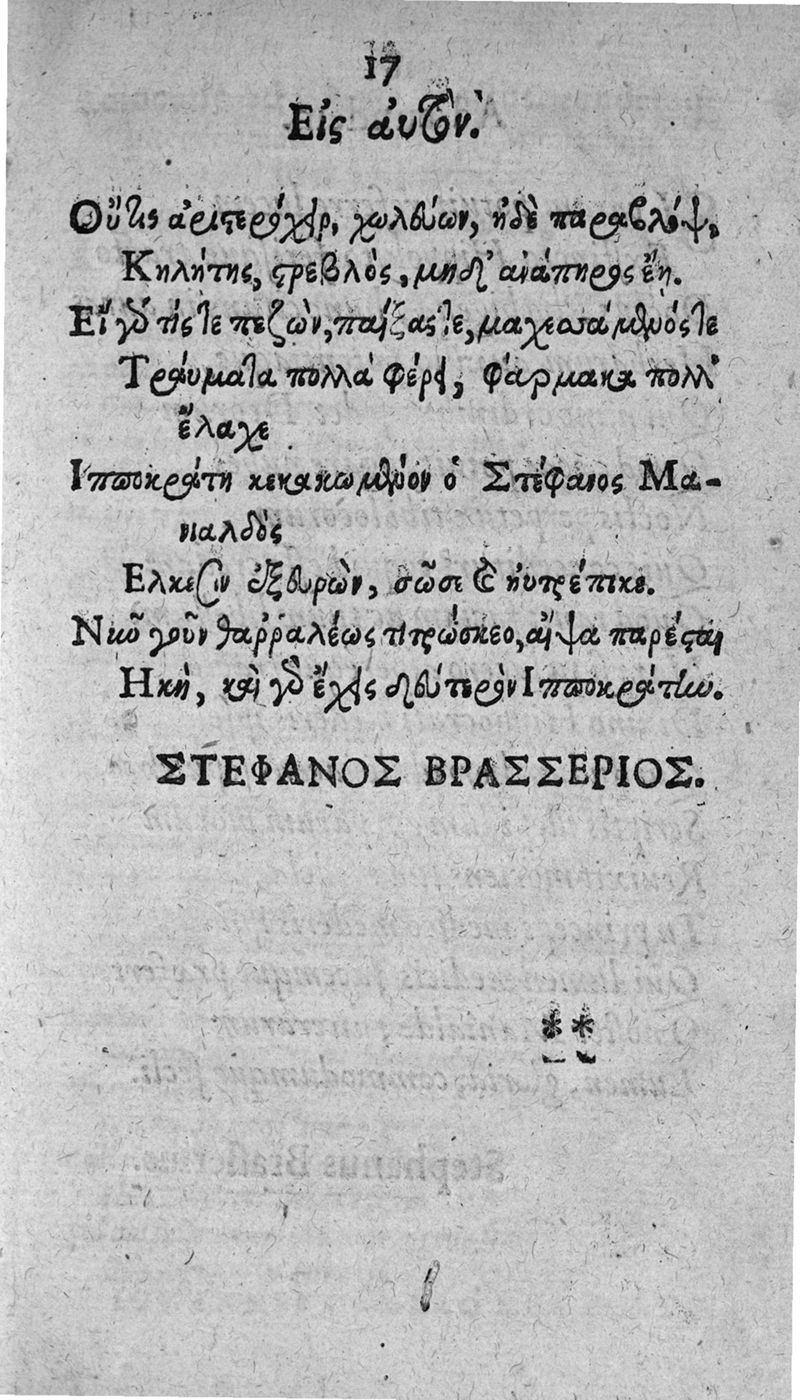 17
Εἰς ἀυτὸν.
Οὔτις ἀριστερόχειρ, χωλεύων, ἠδὲ παραβλώψ,
Κηλήτης, στρεβλὸς, μηδ' ἀνάπηρος ἔη.
Εἴ γδ τίς τε πεζὼν, παίξας τε, μαχεσάμενός τε
Τραύματα πολλὰ φέρει, φάρμακα πολλ'
ἔλαχε
Ιπποκράτη κεκακωμένον ὁ Στέφανος Μα-
νιαλδὸς
Ελκεσιν ἐξευρὼν, σῶσε καὶ ηὐτρέπικε.
Νιῦ γοῦν θαρραλέως τιτρώσκεο, αἶψα παρέσται
Ηκὴ, καὶ γδ ἔχεις δεύτερον Ιπποκράτιω.
ΣΤΕΦΑΝΟΣ ΒΡΑΣΣΕΡΙΟΣ.
**